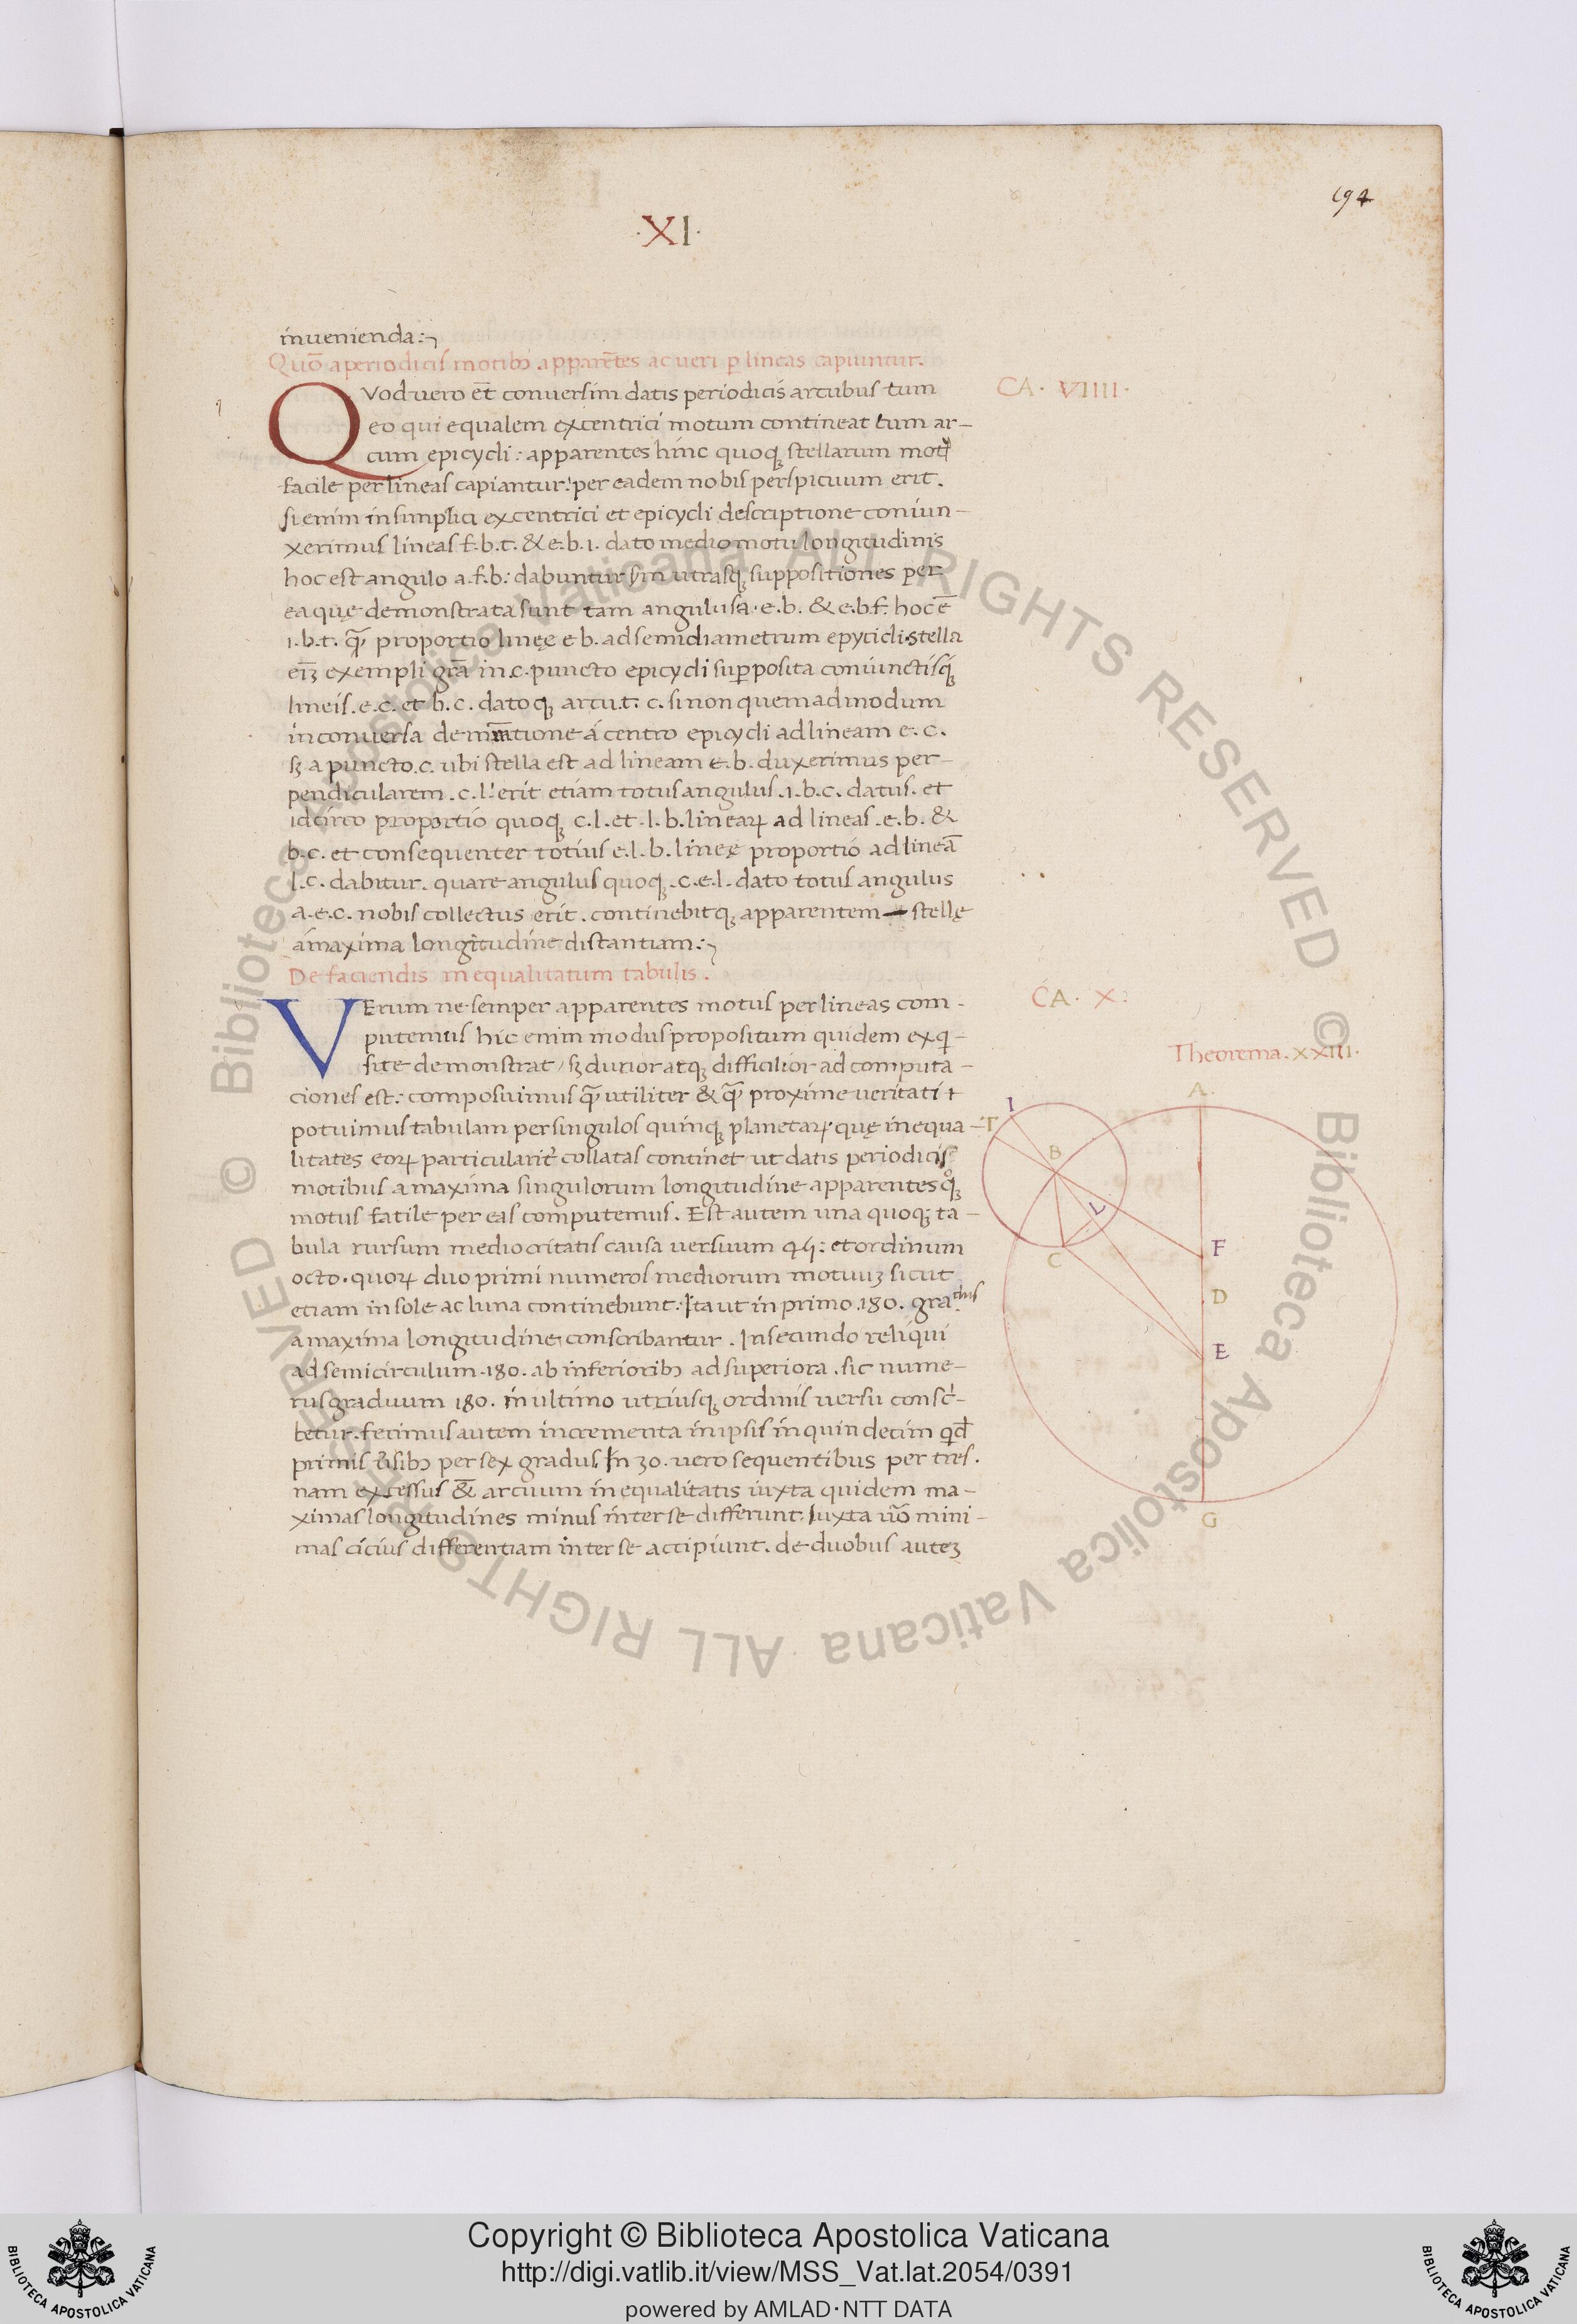 194
·XI·
inuenienda:
Quō a periodicis motibꝫ apparētes ac ueri p lineas capiuntur.
CA. VIIII.
QVod uero et̄ conuersim datis periodicis arcubus tum
eo qui equalem excentrici motum contineat tum ar-
cum epicycli: apparentes hinc quoqꝫ stellarum motꝰ
facile per lineas capiantur: per eadem nobis perspicuum erit.
si enim in simplici excentrici et epicycli descriptione coniun-
xerimus lineas f.b.t. & e.b.i. dato medio motu longitudinis
hoc est angulo a.f.b: dabuntur sm̄ utrasqꝫ suppositiones per
ea quę demonstrata sunt tam angulus a.e.b. & e.b.f. hoc ē
i.b.t. q̄ proportio linęe e b. ad semidiametrum epycicli. stella
ei̅ꝫ exempli grā in.c. puncto epicycli supposita coniunctisqꝫ
lineis. e.c. et b.c. datoqꝫ arcu.t. c. si non quemadmodum
in conuersa demr̄atione á centro epicycli ad lineam e. c.
sꝫ a puncto.c. ubi stella est ad lineam e.b. duxerimus per-
pendicularem .c.l: erit etiam totus angulus .i.b.c. datus. et
idcirco proportio quoqꝫ c.l. et .l.b. linearꝝ ad lineas .e.b. &
b.c. et consequenter totius e.l.b. lineę proportio ad lineā
l.c. dabitur. quare angulus quoqꝫ .c.e.l. dato totus angulus
a.e.c. nobis collectus erit. continebitqꝫ apparentem stellę
á maxima longitudine distantiam:
De faciendis inequalitatum tabulis.
CA. X.
VErum ne semper apparentes motus per lineas com-
putemus hic enim modus propositum quidem exqi-
site demonstrat / sꝫ durior atqꝫ difficilior ad computa-
ciones est: composuimus q̄ utiliter & q̄ proxime ueritati
potuimus tabulam per singulos quinqꝫ planetarꝝ quę inequa-
litates eorꝝ particularit̓ collatas continet ut datis periodicis
motibus a maxima singulorum longitudine apparentes qͦꝫ
motus facile per eas computemus. Est autem una quoqꝫ ta-
bula rursum mediocritatis causa uersuum 45: et ordinum
octo. quorꝝ duo primi numeros mediorum motuuꝫ sicut
etiam in sole ac luna continebunt. Ita ut in primo .180. gradus
a maxima longitudine conscribantur. In secundo reliqui
ad semicirculum .180. ab inferioribꝫ ad superiora. sic nume-
rus graduum 180. in ultimo utriusqꝫ ordinis uersu conscri-
betur. fecimus autem incrementa in ipsis in quindecim qid̄
primis ūsibꝫ per sex gradus. In 30. uero sequentibus per tres.
nam excessus &̄ arcuum inequalitatis iuxta quidem ma-
ximas longitudines minus inter se differunt. Iuxta uō mini-
mas cicius differentiam inter se accipiunt. de duobus auteꝫ
Theorema. XXIII.
A
I
T
B
L
C
F
D
E
G
© Biblioteca Apostolica Vaticana ALL RIGHTS RESERVED © Biblioteca Apostolica Vaticana ALL RIGHTS RESERVED
BIBLIOTECA APOSTOLICA VATICANA
Copyright © Biblioteca Apostolica Vaticana
http://digi.vatlib.it/view/MSS_Vat.lat.2054/0391
powered by AMLAD·NTT DATA
BIBLIOTECA APOSTOLICA VATICANA